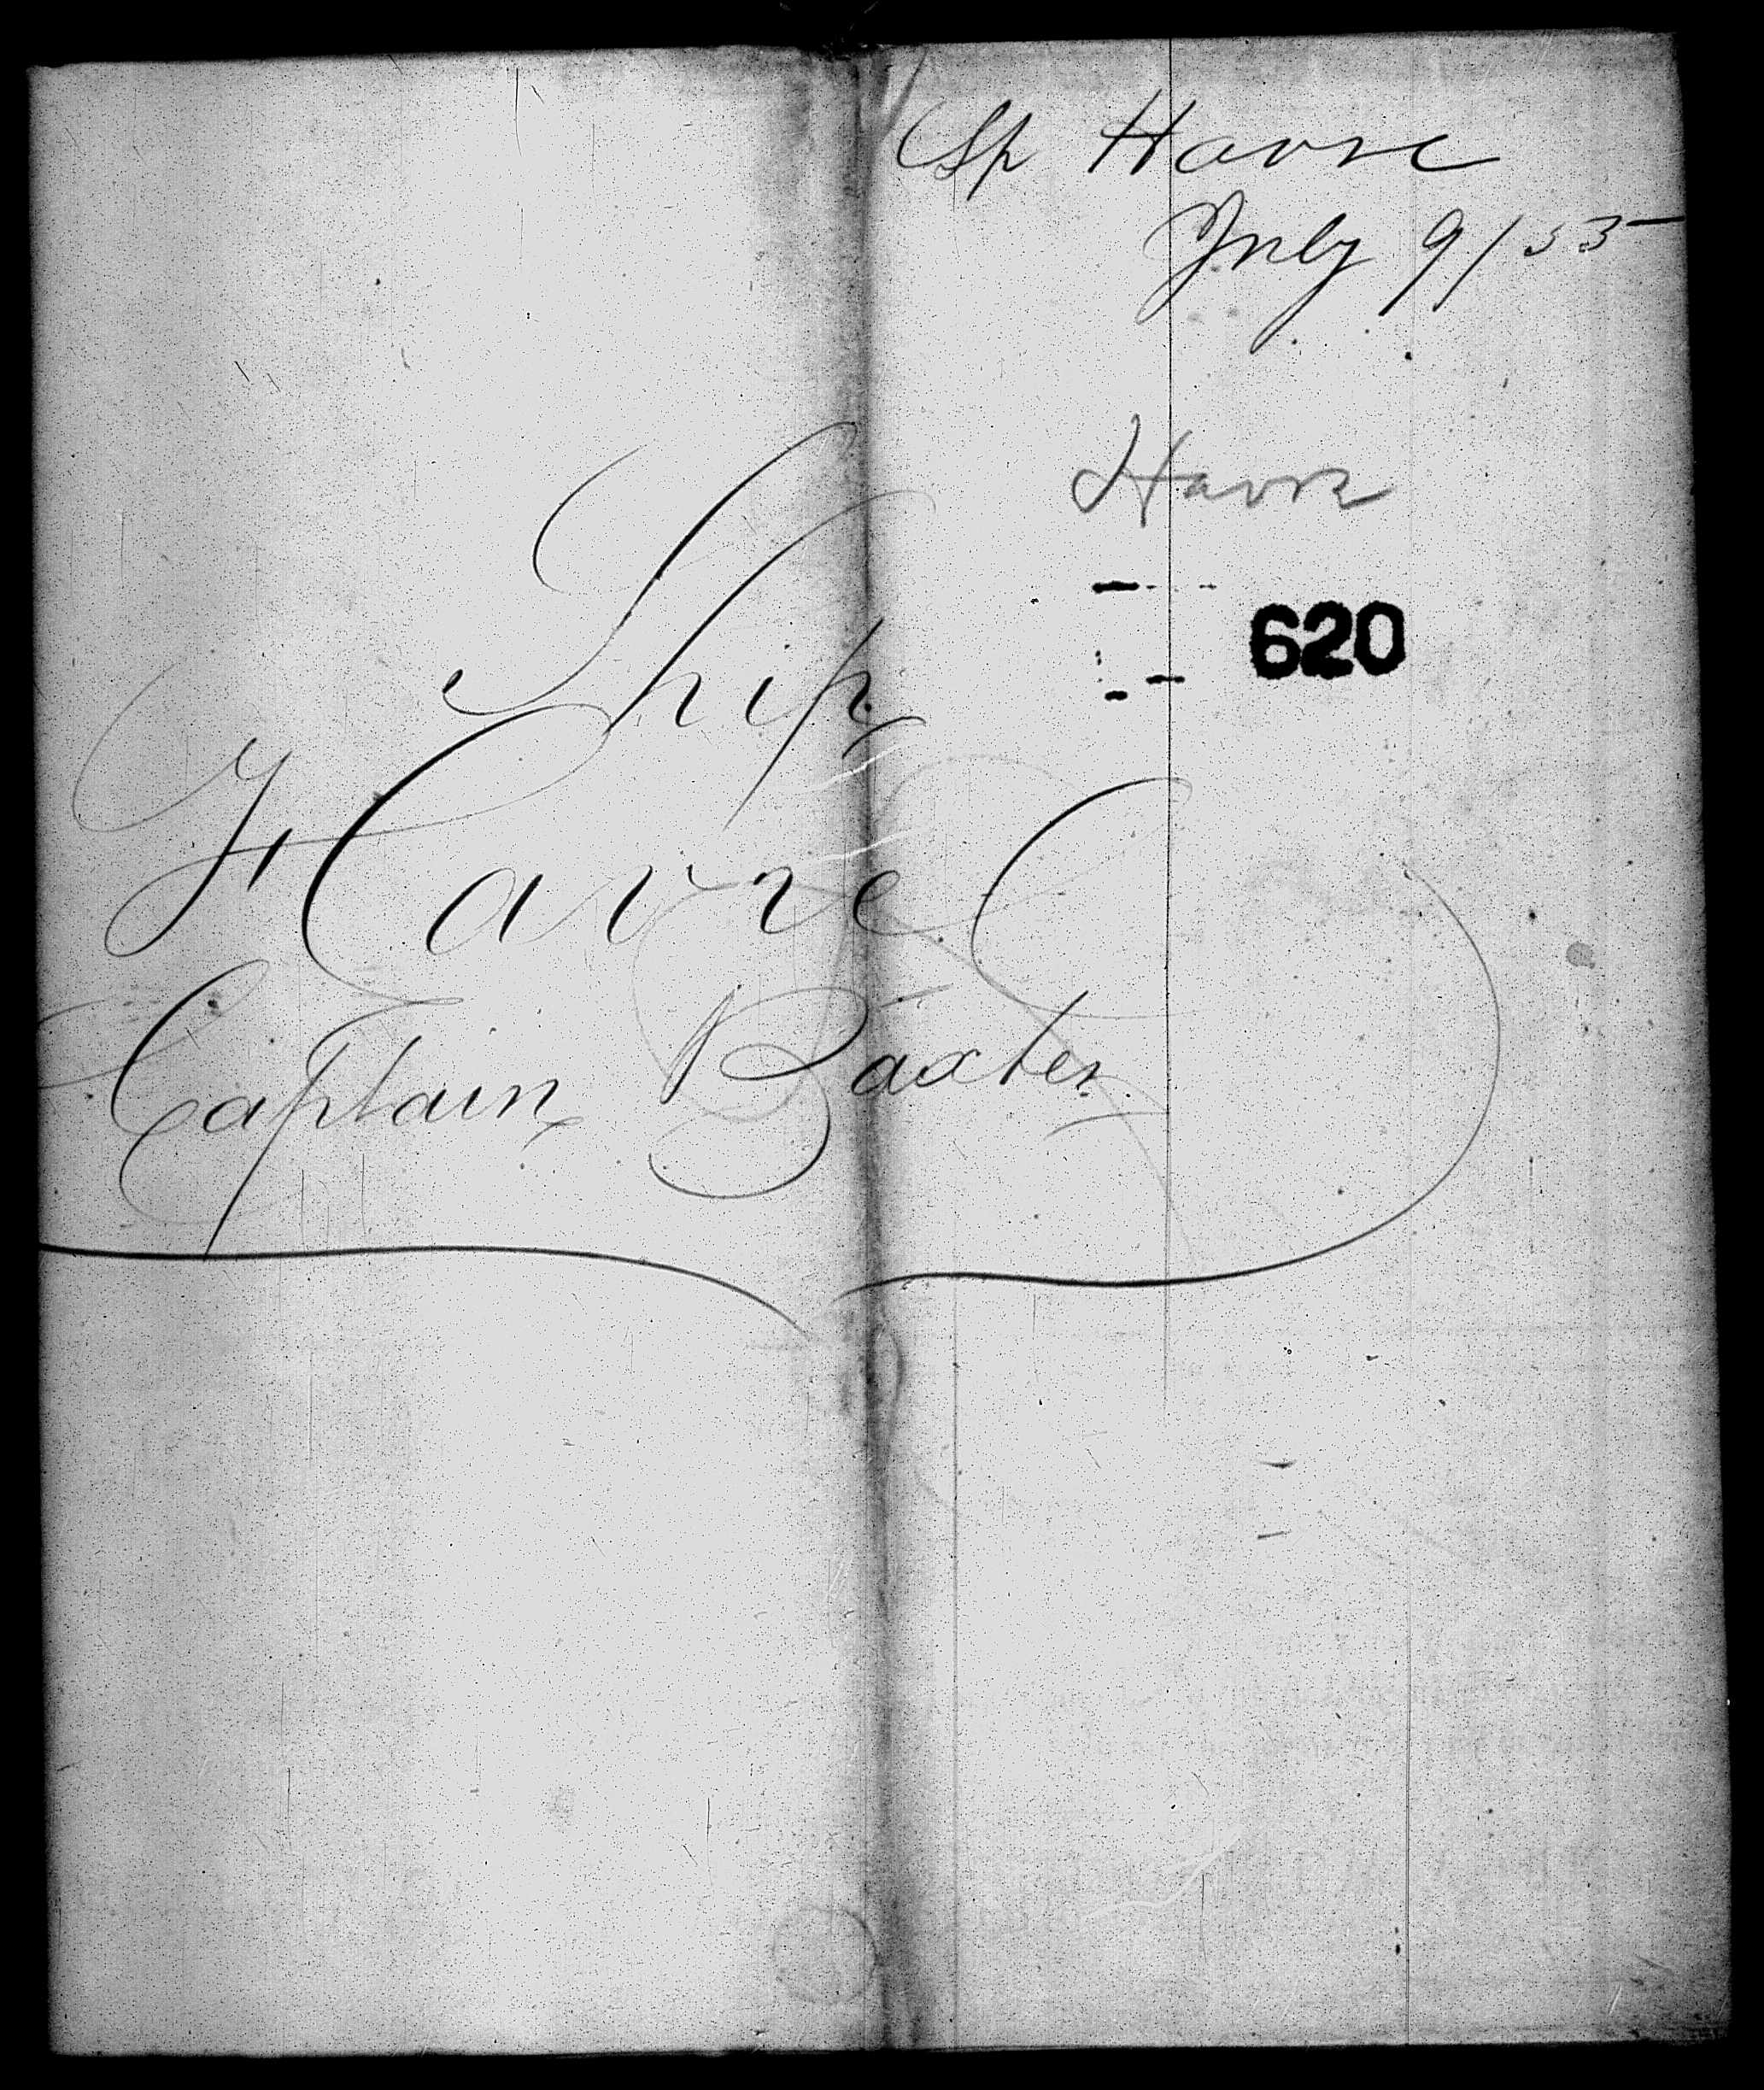 Sp Havre
July 9/55
Havre
620
Ship
Havre
Captain Baxter